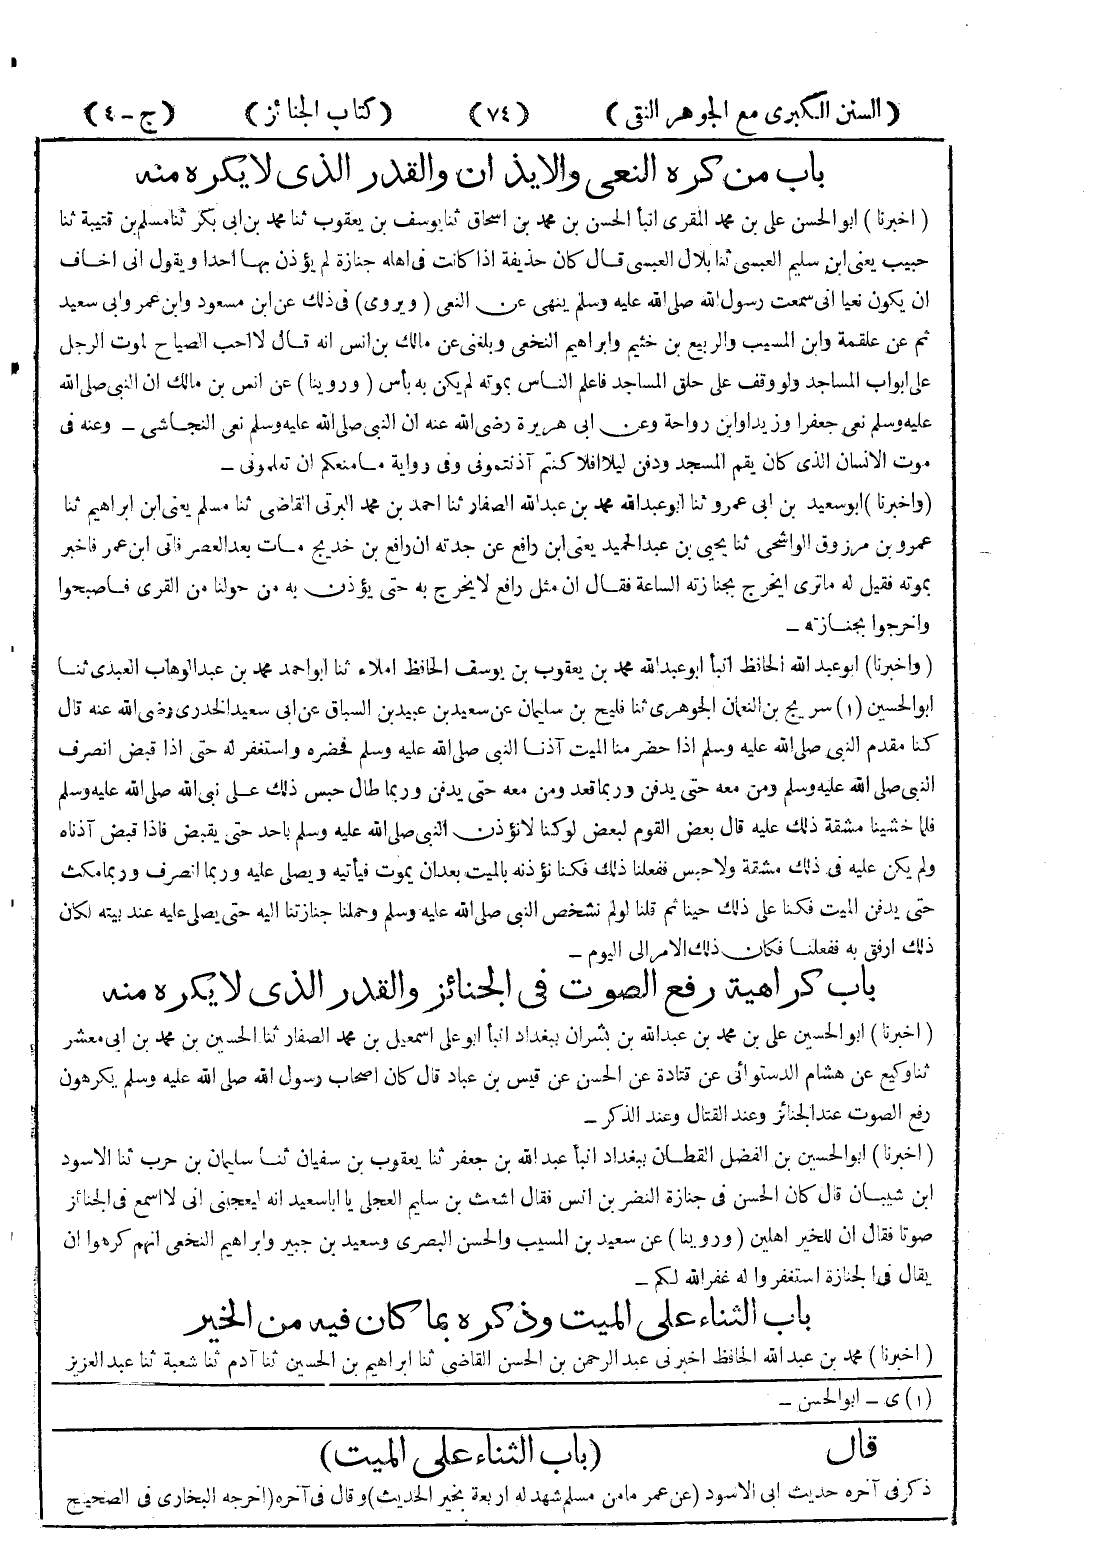 (السنن الكبرى مع الجوهر النقى) (٧٤) (كتاب الجنائز) (ج - ٤)
باب من كره النعى والايذان والقدر الذى لا يكره منه
(اخبرنا) ابوالحسن على بن محمد المقرى انبأ الحسن بن محمد بن اسحاق ثنا يوسف بن يعقوب ثنا محمد بن ابى بكر ثنا مسلم بن قتيبة ثنا
حبيب يعنى ابن سليم العبسى ثنا بلال العبسى قال كان حذيفة اذا كانت فى اهله جنازة لم يؤذن بها احدا ويقول انى اخاف
ان يكون نعيا انى سمعت رسول الله صلى الله عليه وسلم ينهى عن النعى (ويروى) فى ذلك عن ابن مسعود وابن عمر وابى سعيد
ثم عن علقمة وابن المسيب والربيع بن خثيم وابراهيم النخعى وبلغنى عن مالك بن انس انه قال لا احب الصياح لموت الرجل
على ابواب المساجد ولو وقف على حلق المساجد فاعلم الناس بموته لم يكن به بأس (وروينا) عن انس بن مالك ان النبى صلى الله
عليه وسلم نعى جعفرا وزيدا وابن رواحة وعن ابى هريرة رضى الله عنه ان النبى صلى الله عليه وسلم نعى النجاشى - وعنه فى
موت الانسان الذى كان يقم المسجد ودفن ليلا افلا كنتم آذنتمونى وفى رواية ما منعكم ان تعلمونى -
(واخبرنا) ابوسعيد بن ابى عمرو ثنا ابوعبدالله محمد بن عبدالله الصفار ثنا احمد بن محمد البرتى القاضى ثنا مسلم يعنى ابن ابراهيم ثنا
عمرو بن مرزوق الواشحى ثنا يحيى بن عبدالحميد يعنى ابن رافع عن جدته ان رافع بن خديج مات بعد العصر فاتى ابن عمر فاخبر
بموته فقيل له ماترى ايخرج بجنازته الساعة فقال ان مثل رافع لا يخرج به حتى يؤذن به من حولنا من القرى فاصبحوا
واخرجوا بجنازته -
(واخبرنا) ابوعبد الله الحافظ انبأ ابوعبدالله محمد بن يعقوب بن يوسف الحافظ املاء ثنا ابواحمد محمد بن عبدالوهاب العبدى ثنا
ابوالحسين (١) سريج بن النعمان الجوهرى ثنا فليح بن سليمان عن سعيد بن عبيد بن السباق عن ابى سعيد الخدرى رضى الله عنه قال
كنا مقدم النبى صلى الله عليه وسلم اذا حضر منا الميت آذنا النبى صلى الله عليه وسلم فحضره واستغفر له حتى اذا قبض انصرف
النبى صلى الله عليه وسلم ومن معه حتى يدفن وربما قعد ومن معه حتى يدفن وربما طال حبس ذلك على نبى الله صلى الله عليه وسلم
فلما خشينا مشقة ذلك عليه قال بعض القوم لبعض لو كنا لا نؤذن النبى صلى الله عليه وسلم باحد حتى يقبض فاذا قبض آذناه
ولم يكن عليه فى ذلك مشقة ولا حبس ففعلنا ذلك فكنا نؤذنه بالميت بعد ان يموت فيأتيه ويصلى عليه وربما انصرف وربما مكث
حتى يدفن الميت فكنا على ذلك حينا ثم قلنا لو لم نشخص النبى صلى الله عليه وسلم وحملنا جنازتنا اليه حتى يصلى عليه عند بيته لكان
ذلك ارفق به ففعلنا فكان ذلك الامر الى اليوم -
باب كراهية رفع الصوت فى الجنائز والقدر الذى لا يكره منه
(اخبرنا) ابوالحسين على بن محمد بن عبدالله بن بشران ببغداد انبأ ابوعلى اسمعيل بن محمد الصفار ثنا الحسين بن محمد بن ابى معشر
ثنا وكيع عن هشام الدستوائى عن قتادة عن الحسن عن قيس بن عباد قال كان اصحاب رسول الله صلى الله عليه وسلم يكرهون
رفع الصوت عند الجنائز وعند القتال وعند الذكر -
(اخبرنا) ابوالحسين بن الفضل القطان ببغداد انبأ عبدالله بن جعفر ثنا يعقوب بن سفيان ثنا سليمان بن حرب ثنا الاسود
ابن شيبان قال كان الحسن فى جنازة النضر بن انس فقال اشعث بن سليم العجلى يا اباسعيد انه ليعجبنى انى لا اسمع فى الجنائز
صوتا فقال ان للخير اهلين (وروينا) عن سعيد بن المسيب والحسن البصرى وسعيد بن جبير وابراهيم النخعى انهم كرهوا ان
يقال فى الجنازة استغفروا له غفرالله لكم -
باب الثناء على الميت وذكره بما كان فيه من الخير
(اخبرنا) محمد بن عبدالله الحافظ اخبرنى عبدالرحمن بن الحسن القاضى ثنا ابراهيم بن الحسين ثنا آدم ثنا شعبة ثنا عبدالعزيز
(١) ى - ابوالحسن -
قال (باب الثناء على الميت)
ذكر فى آخره حديث ابى الاسود (عن عمر مامن مسلم شهد له اربعة بخير الحديث) وقال فى آخره (اخرجه البخارى فى الصحيح